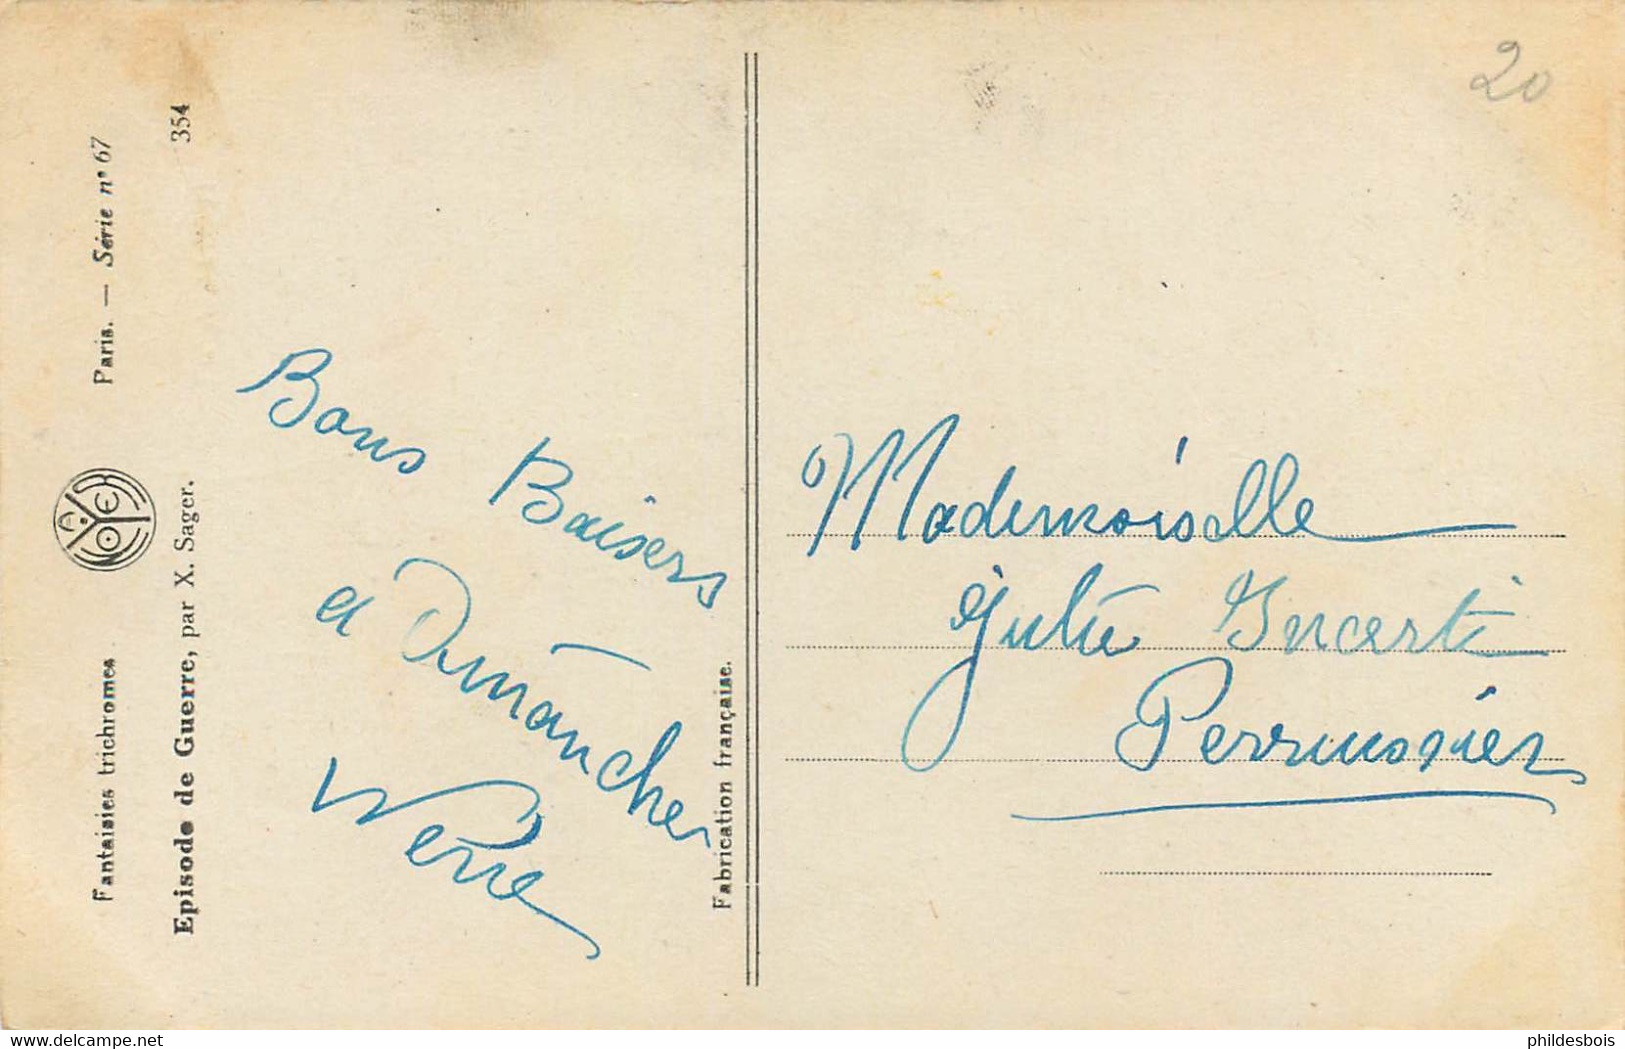 Fantaisies trichromes
A. NOYER
Paris. — Série n° 67
Episode de Guerre, par X. Sager.
354
Bons Baisers
a Dimanche
Fabrication française.
20
Mademoiselle
Julie Incerti
Perrusnier
delcampe.net
phildesbois